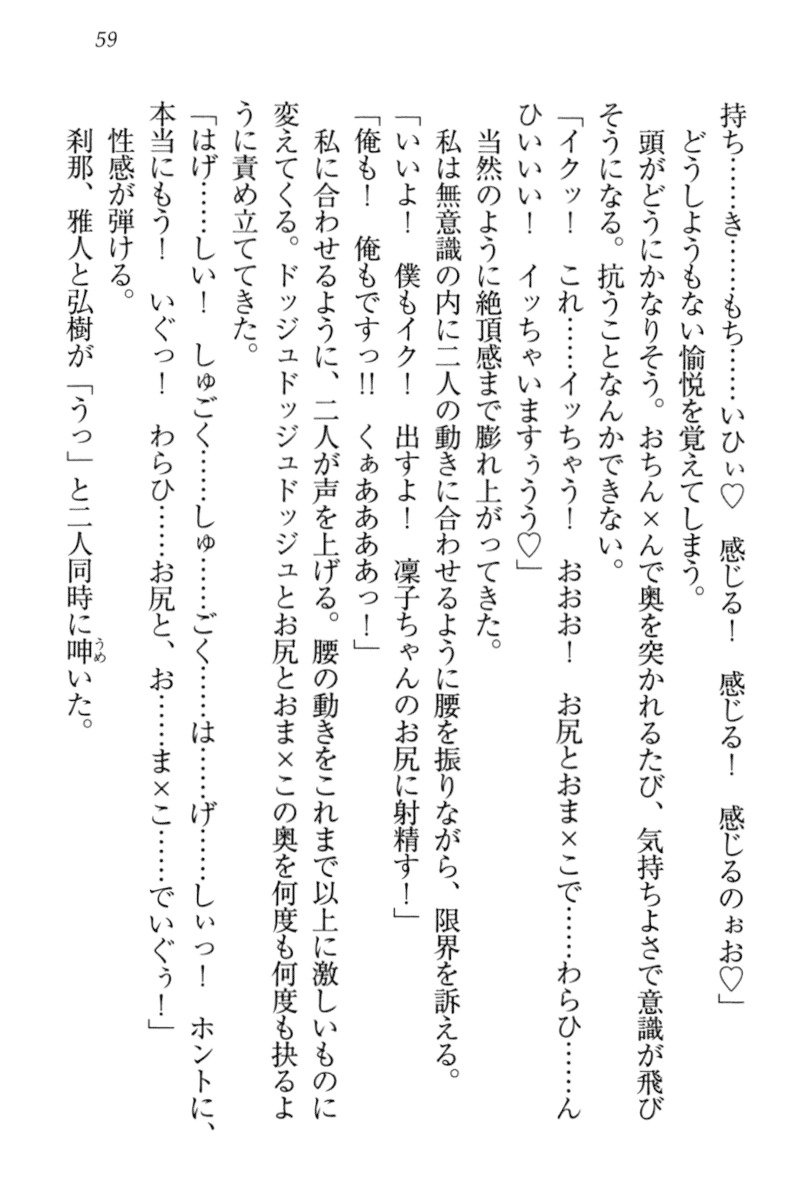 59
持ち……き……もち……いひぃ♡　感じる！　感じる！　感じるのぉお♡」
どうしようもない愉悦を覚えてしまう。
頭がどうにかなりそう。おちん×んで奥を突かれるたび、気持ちよさで意識が飛び
そうになる。抗うことなんかできない。
「イクッ！　これ……イッちゃう！　おおお！　お尻とおま×こで……わらひ……ん
ひいいい！　イッちゃいますぅうう♡」
当然のように絶頂感まで膨れ上がってきた。
私は無意識の内に二人の動きに合わせるように腰を振りながら、限界を訴える。
「いいよ！　僕もイク！　出すよ！　凜子ちゃんのお尻に射精す！」
「俺も！　俺もですっ!!　くぁああああっ！」
私に合わせるように、二人が声を上げる。腰の動きをこれまで以上に激しいものに
変えてくる。ドッジュドッジュドッジュとお尻とおま×この奥を何度も何度も抉るよ
うに責め立ててきた。
「はげ……しい！　しゅごく……しゅ……ごく……は……げ……しぃっ！　ホントに、
本当にもう！　いぐっ！　わらひ……お尻と、お……ま×こ……でいぐぅ！」
性感が弾ける。
刹那、雅人と弘樹が「うっ」と二人同時に呻いた。
うめ